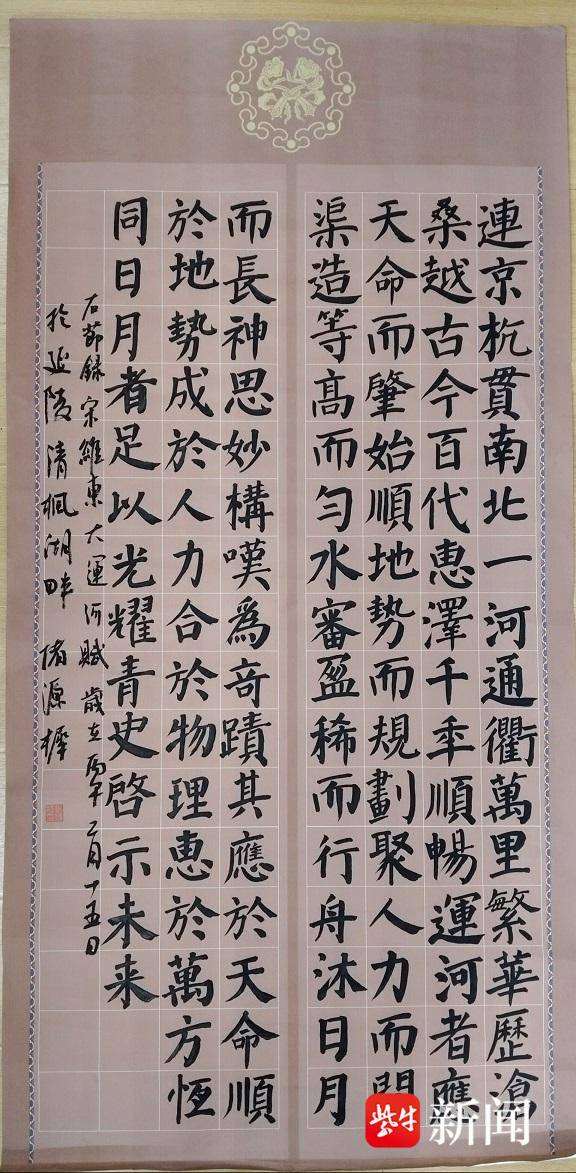 連京杭貫南北一河通衢萬里繁華歷滄
桑越古今百代惠澤千年順暢運河者應
天命而肇始順地勢而規劃聚人力而開
渠造等高而勻水審盈稀而行舟沐日月
而長神思妙構嘆為奇蹟其應於天命順
於地勢成於人力合於物理惠於萬方恆
同日月者足以光耀青史啓示未来
右節錄宋維東大運河賦歲在丙午二月十五日
於延陵清楓湖畔 源
紫牛新闻